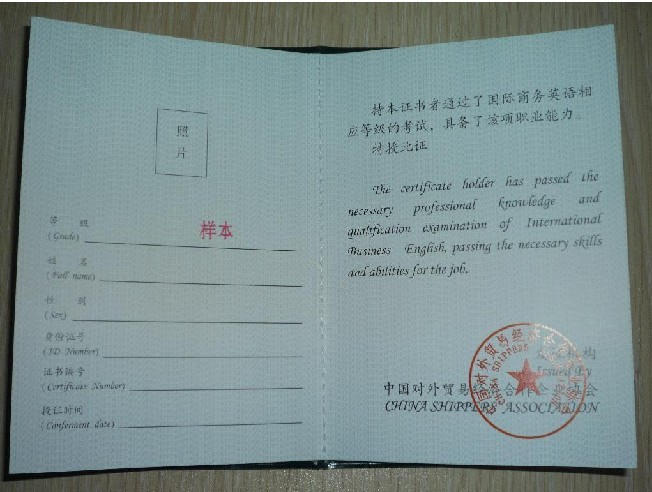 照
片
等 级
(Grade)
样本
姓 名
(Full name)
性 别
(Sex)
身份证号
(ID Number)
证书编号
(Certificate Number)
授证时间
(Conferment date)
持本证书者通过了国际商务英语相
应等级的考试，具备了该项职业能力。
特授此证
The certificate holder has passed the
necessary professional knowledge and
qualification examination of International
Business English, passing the necessary skills
and abilities for the job.
机构
Issued By
中国对外贸易经济合作企业协会
CHINA SHIPPERS' ASSOCIATION